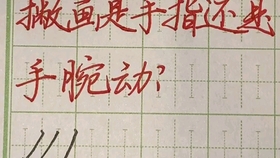 撇画是手指还是
手腕动?